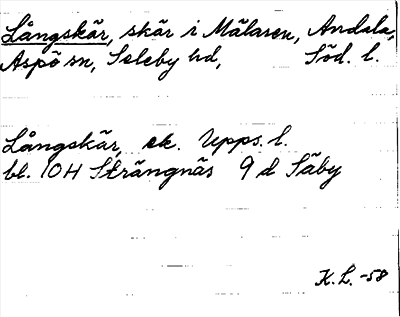 Långskär, skär i Mälaren, Andala,
Aspö sn, Seleby hd, Söd. l.
Långskär, ek. Upps. l.
bl. 10H Strängnäs 9 d Säby
K.L. -58